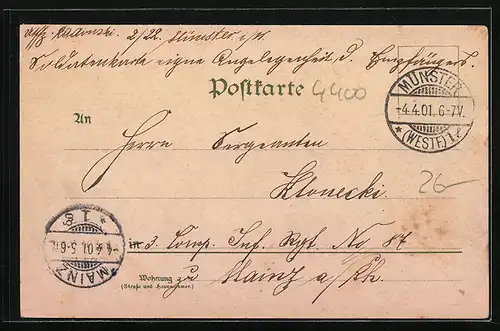 2/22. Münster i/W.
Soldatenkarte eigne Angelegenheit d. Empfängers.
Postkarte
4400
MÜNSTER
-4.4.01. 6-7V.
* (WESTF.) 1 *
An
Herrn Sergeanten
Klonecki
26-
MAINZ
-4.4.01. 5-6N.
* 1
in 3. Comp. Inf. Rgt. No 87
Wohnung zu Mainz a/Rh.
(Straße und Hausnummer)